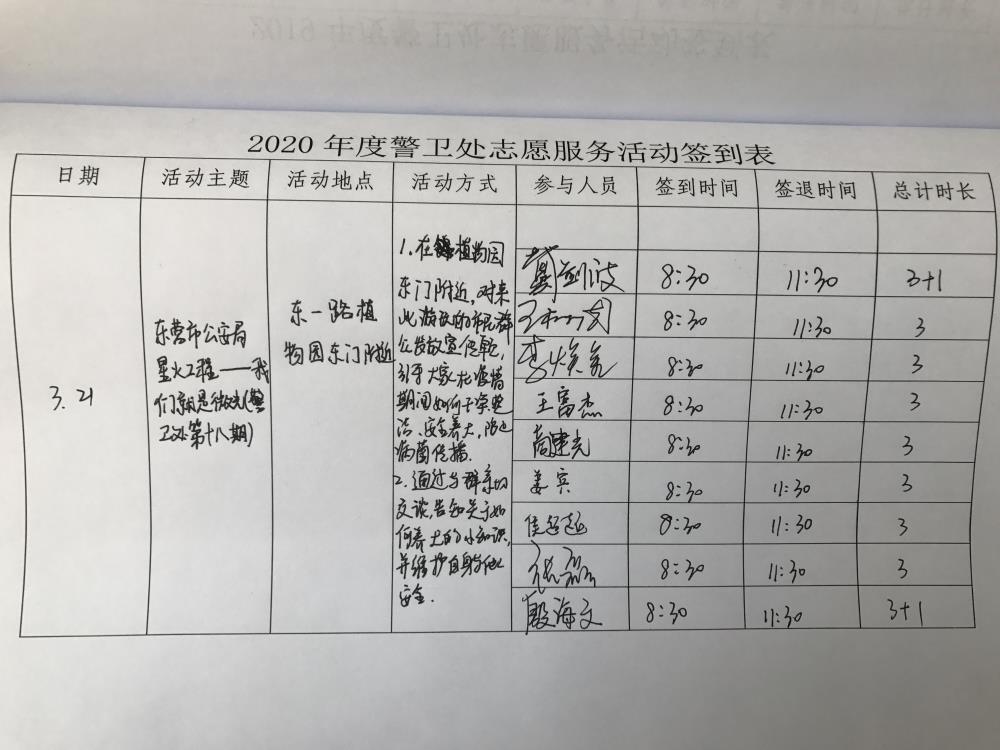 2020 年度警卫处志愿服务活动签到表
日期 活动主题 活动地点 活动方式 参与人员 签到时间 签退时间 总计时长
3.21
东营市公安局
星火工程——我
们就是微光(警
卫处第十八期)
东一路植
物园东门附近
1.在植物园
东门附近,对来
此游玩的市民群
众发放宣传单,
引导大家在疫情
期间如何
养犬,防止
病菌传播.
2.通过与群众的
交谈,告知关于如
何养犬的小知识,
并维护自身与他人
安全.
8:30 11:30 3+1
8:30 11:30 3
8:30 11:30 3
王富杰 8:30 11:30 3
建光 8:30 11:30 3
姜宾 8:30 11:30 3
超越 8:30 11:30 3
8:30 11:30 3
殷海文 8:30 11:30 3+1